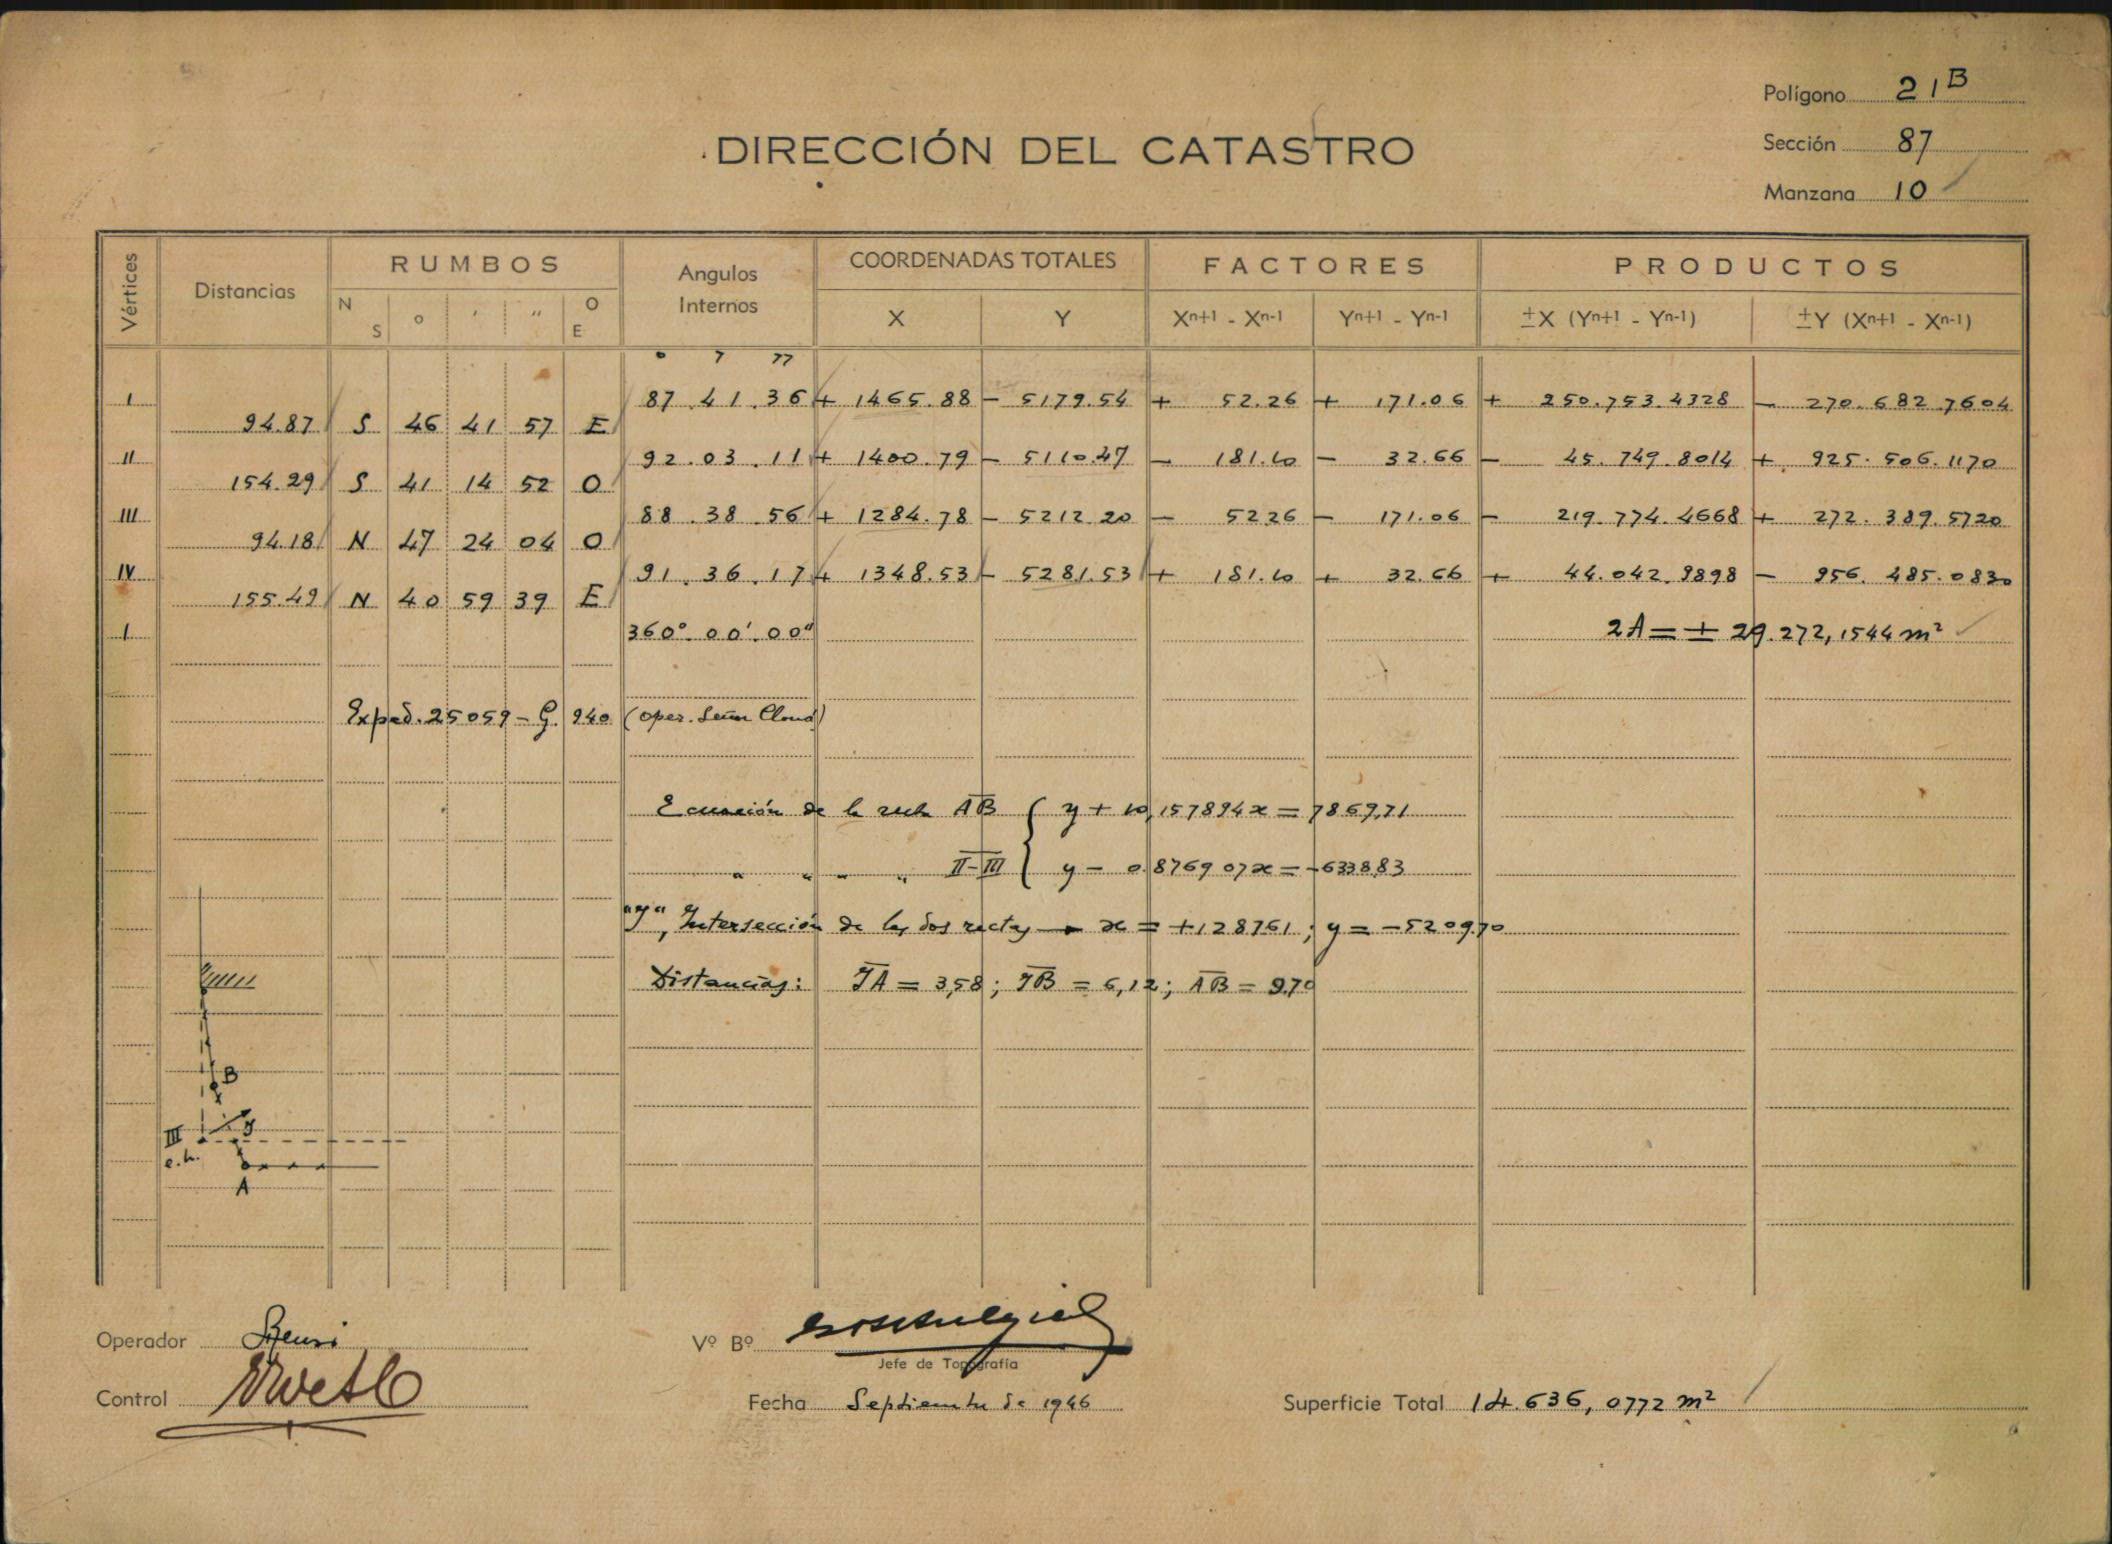 Polígono 21B
DIRECCIÓN DEL CATASTRO
Sección 87
Manzana 10
Vértices Distancias RUMBOS Angulos Internos COORDENADAS TOTALES FACTORES PRODUCTOS
N S o ' " O E X Y Xn+1 - Xn-1 Yn+1 - Yn-1 ±X (Yn+1 - Yn-1) ±Y (Xn+1 - Xn-1)
o ' "
I 87.41.36 + 1465.88 - 5179.54 + 52.26 + 171.06 + 250.753.4328 - 270.682.7604
94.87 S 46 41 57 E
II 92.03.11 + 1400.79 - 5110.47 - 181.10 - 32.66 - 45.749.8014 + 925.506.1170
154.29 S 41 14 52 O
III 88.38.56 + 1284.78 - 5212.20 - 52.26 - 171.06 - 219.774.4668 + 272.389.5720
94.18 N 47 24 04 O
IV 91.36.17 + 1348.53 - 5281.53 + 181.10 + 32.66 + 44.042.9898 - 956.485.0830
155.49 N 40 59 39 E
I 360°.00'.00" 2A = ± 29.272,1544 m²
Exped. 25059 - G. 940 (oper. Señor Cloud)
Ecuación de la recta AB { y + 10,157894x = 7869,71
" " " " II-III { y - 0.876907x = -6338,83
Intersección de las dos rectas → x = +1287,61; y = -5209,70
Distancias: JA = 3,58; JB = 6,12; AB = 9.70
B
III
e.h.
A
Operador
Vº Bº
Jefe de Topografía
Control
Fecha Septiembre de 1946
Superficie Total 14.636,0772 m²